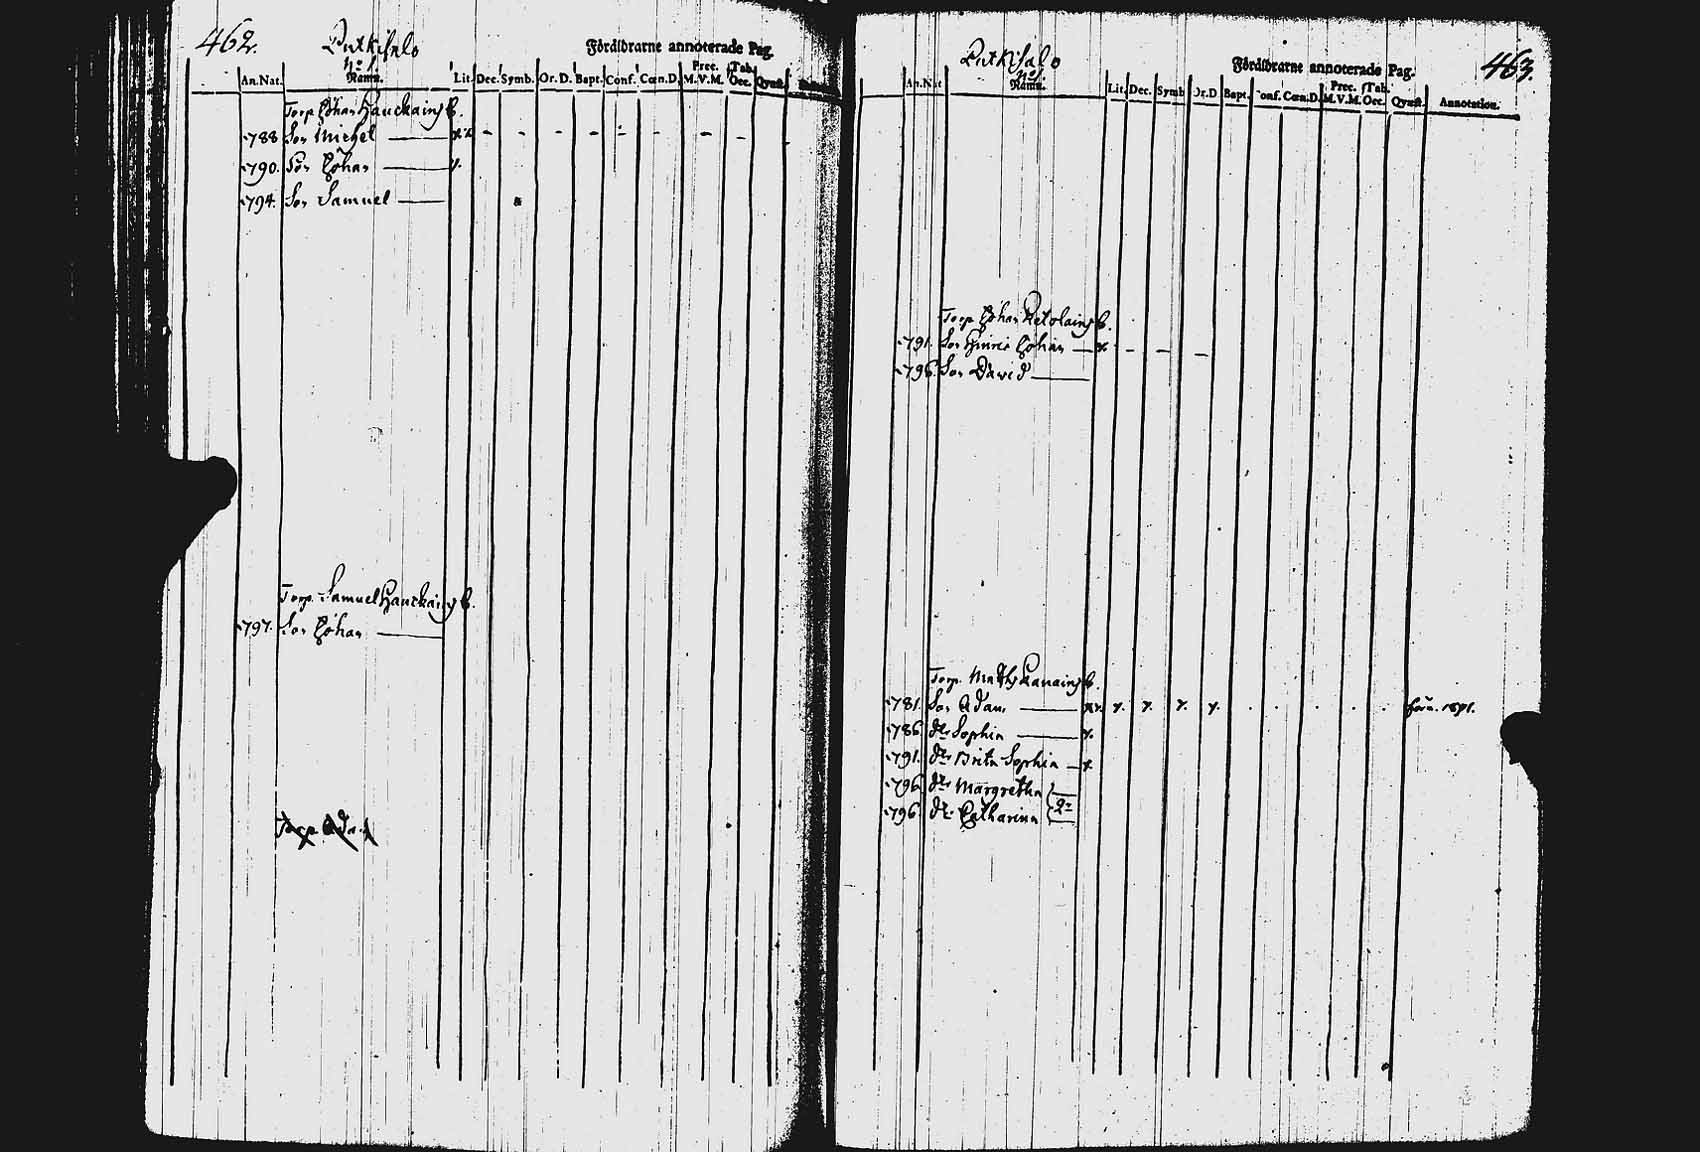 462.
Putkisalo
No 1.
Föräldrarne annoterade Pag.
An. Nat. Namn. Lit. Dec. Symb. Or. D. Bapt. Conf. Cœn. D. Prec. M.V.M. Tab. Oec. Qvæst.
Torp. Johan Hauckains B.
1788 Son Michel
1790. Son Johan
1794. Son Samuel
Torp. Samuel Hauckains B.
1797. Son Johan
Torp. Adam
Putkisalo
No 1.
Föräldrarne annoterade Pag.
463.
An. Nat Namn. Lit. Dec. Symb Or. D. Bapt. Conf. Cœn. D. Prec. M.V.M. Tab. Oec. Qvæst. Annotation.
Torp. Johan B.
1791. Son Hinric Johan
1796. Son David
Torp. B.
1781. Son Adam
1786. dr Sophia
1791. dr Brita Sophia
1796. dr Margretha
1796. dr Catharina